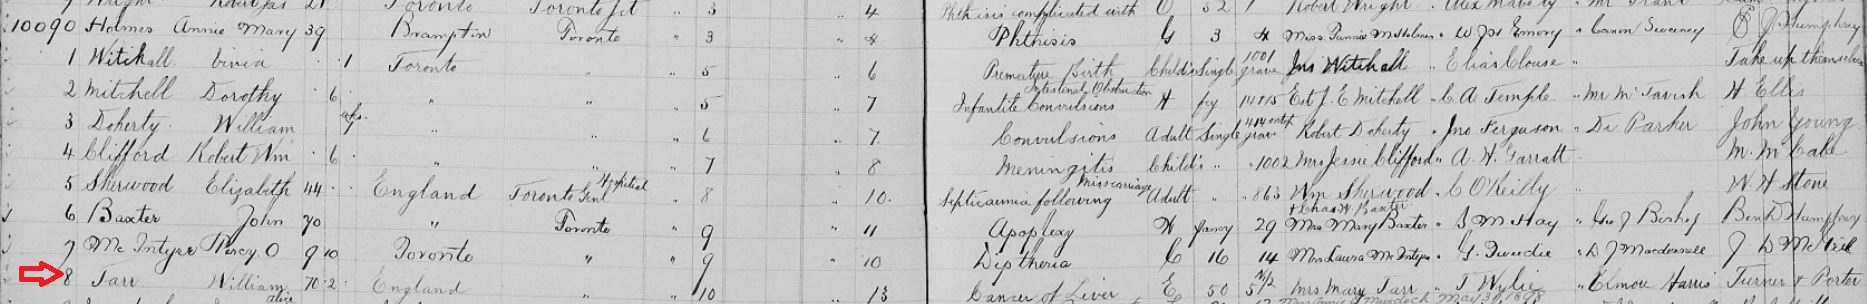 9 Wright Robert Jas 21 Toronto Toronto Jct " 3 " 4 Phthisis complicated with C 32 1 Robert Wright " Alex " Mr Grant
10090 Holmes Annie Mary 39 Brampton Toronto " 3 " 4 Phthisis G 3 4 Miss Fannie M Holmes " W J H Emory " Canon Sweeney J Humphrey
1 Witchall Livia 1 Toronto " " 5 " 6 Premature Birth Child's Single 1001 grave Jno Witchall " Elias Clouse " Take up themselves
2 Mitchell Dorothy 6 " " " 5 " 7 Intestinal Obstruction Infantile Convulsions H 14 Est J. E Mitchell " C A Temple " Mr McTavish H Ellis
3 Doherty William 7 wks. " " " 6 " 7 Convulsions Adult Single grave Robert Doherty " Jno Ferguson " Dr Parker John Young
4 Clifford Robert Wm 6 " " " 7 " 8 Meningitis Child's " " 1002 Mrs Jessie Clifford " A. H. Garratt M. McCabe
5 Sherwood Elizabeth 44 England Toronto Genl Hospital " 8 " 10 Septicaemia following Miscarriage Adult " " 863 Wm Sherwood " C O'Reilly W H Stone
6 Baxter John 70 " Toronto " 9 " 11 Apoplexy N fancy 29 Mrs Mary Baxter + Chas W Baxter " Geo J Bishop Benj Humphrey
7 McIntyre Percy O 9 10 Toronto " " 9 " 10 Diptheria C 16 14 Mrs Laura McIntyre " G. Twedie " D J Macdonnell J D McNeil
8 Tarr William 70 2 England " " 10 " 13 Cancer of Liver E 50 5 N/2 Mrs Mary Tarr " T Wylie " Elmore Harris Turner & Porter
alice Murdoch May 30, 1898